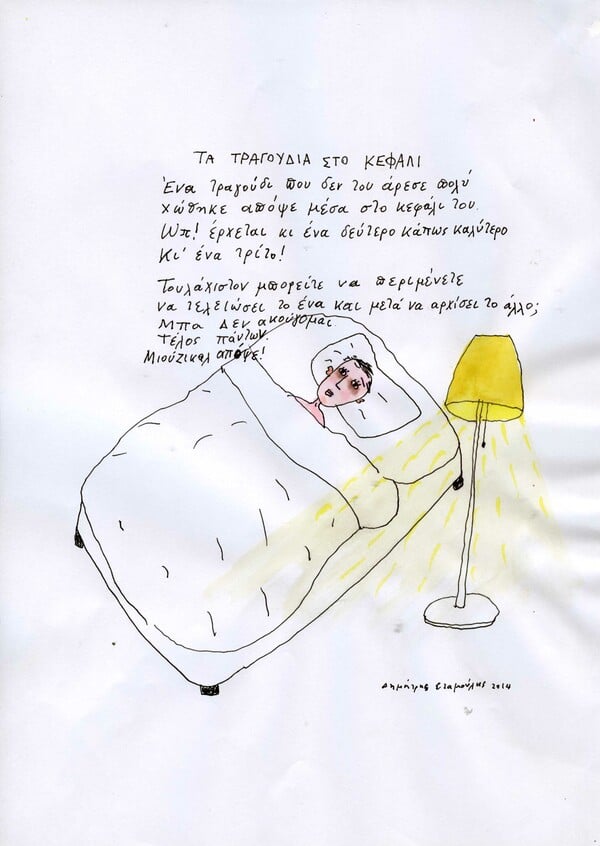 ΤΑ ΤΡΑΓΟΥΔΙΑ ΣΤΟ ΚΕΦΑΛΙ
Ένα τραγούδι που δεν του άρεσε πολύ
χώθηκε απόψε μέσα στο κεφάλι του.
Ωπ! έρχεται κι ένα δεύτερο κάπως καλύτερο
Κι' ένα τρίτο!
Τουλάχιστον μπορείτε να περιμένετε
να τελειώσει το ένα και μετά να αρχίσει το άλλο;
Μπα Δεν ακούγομαι.
Τέλος πάντων.
Μιούζικαλ απόψε!
Δημήτρης Σταμούλης 2014